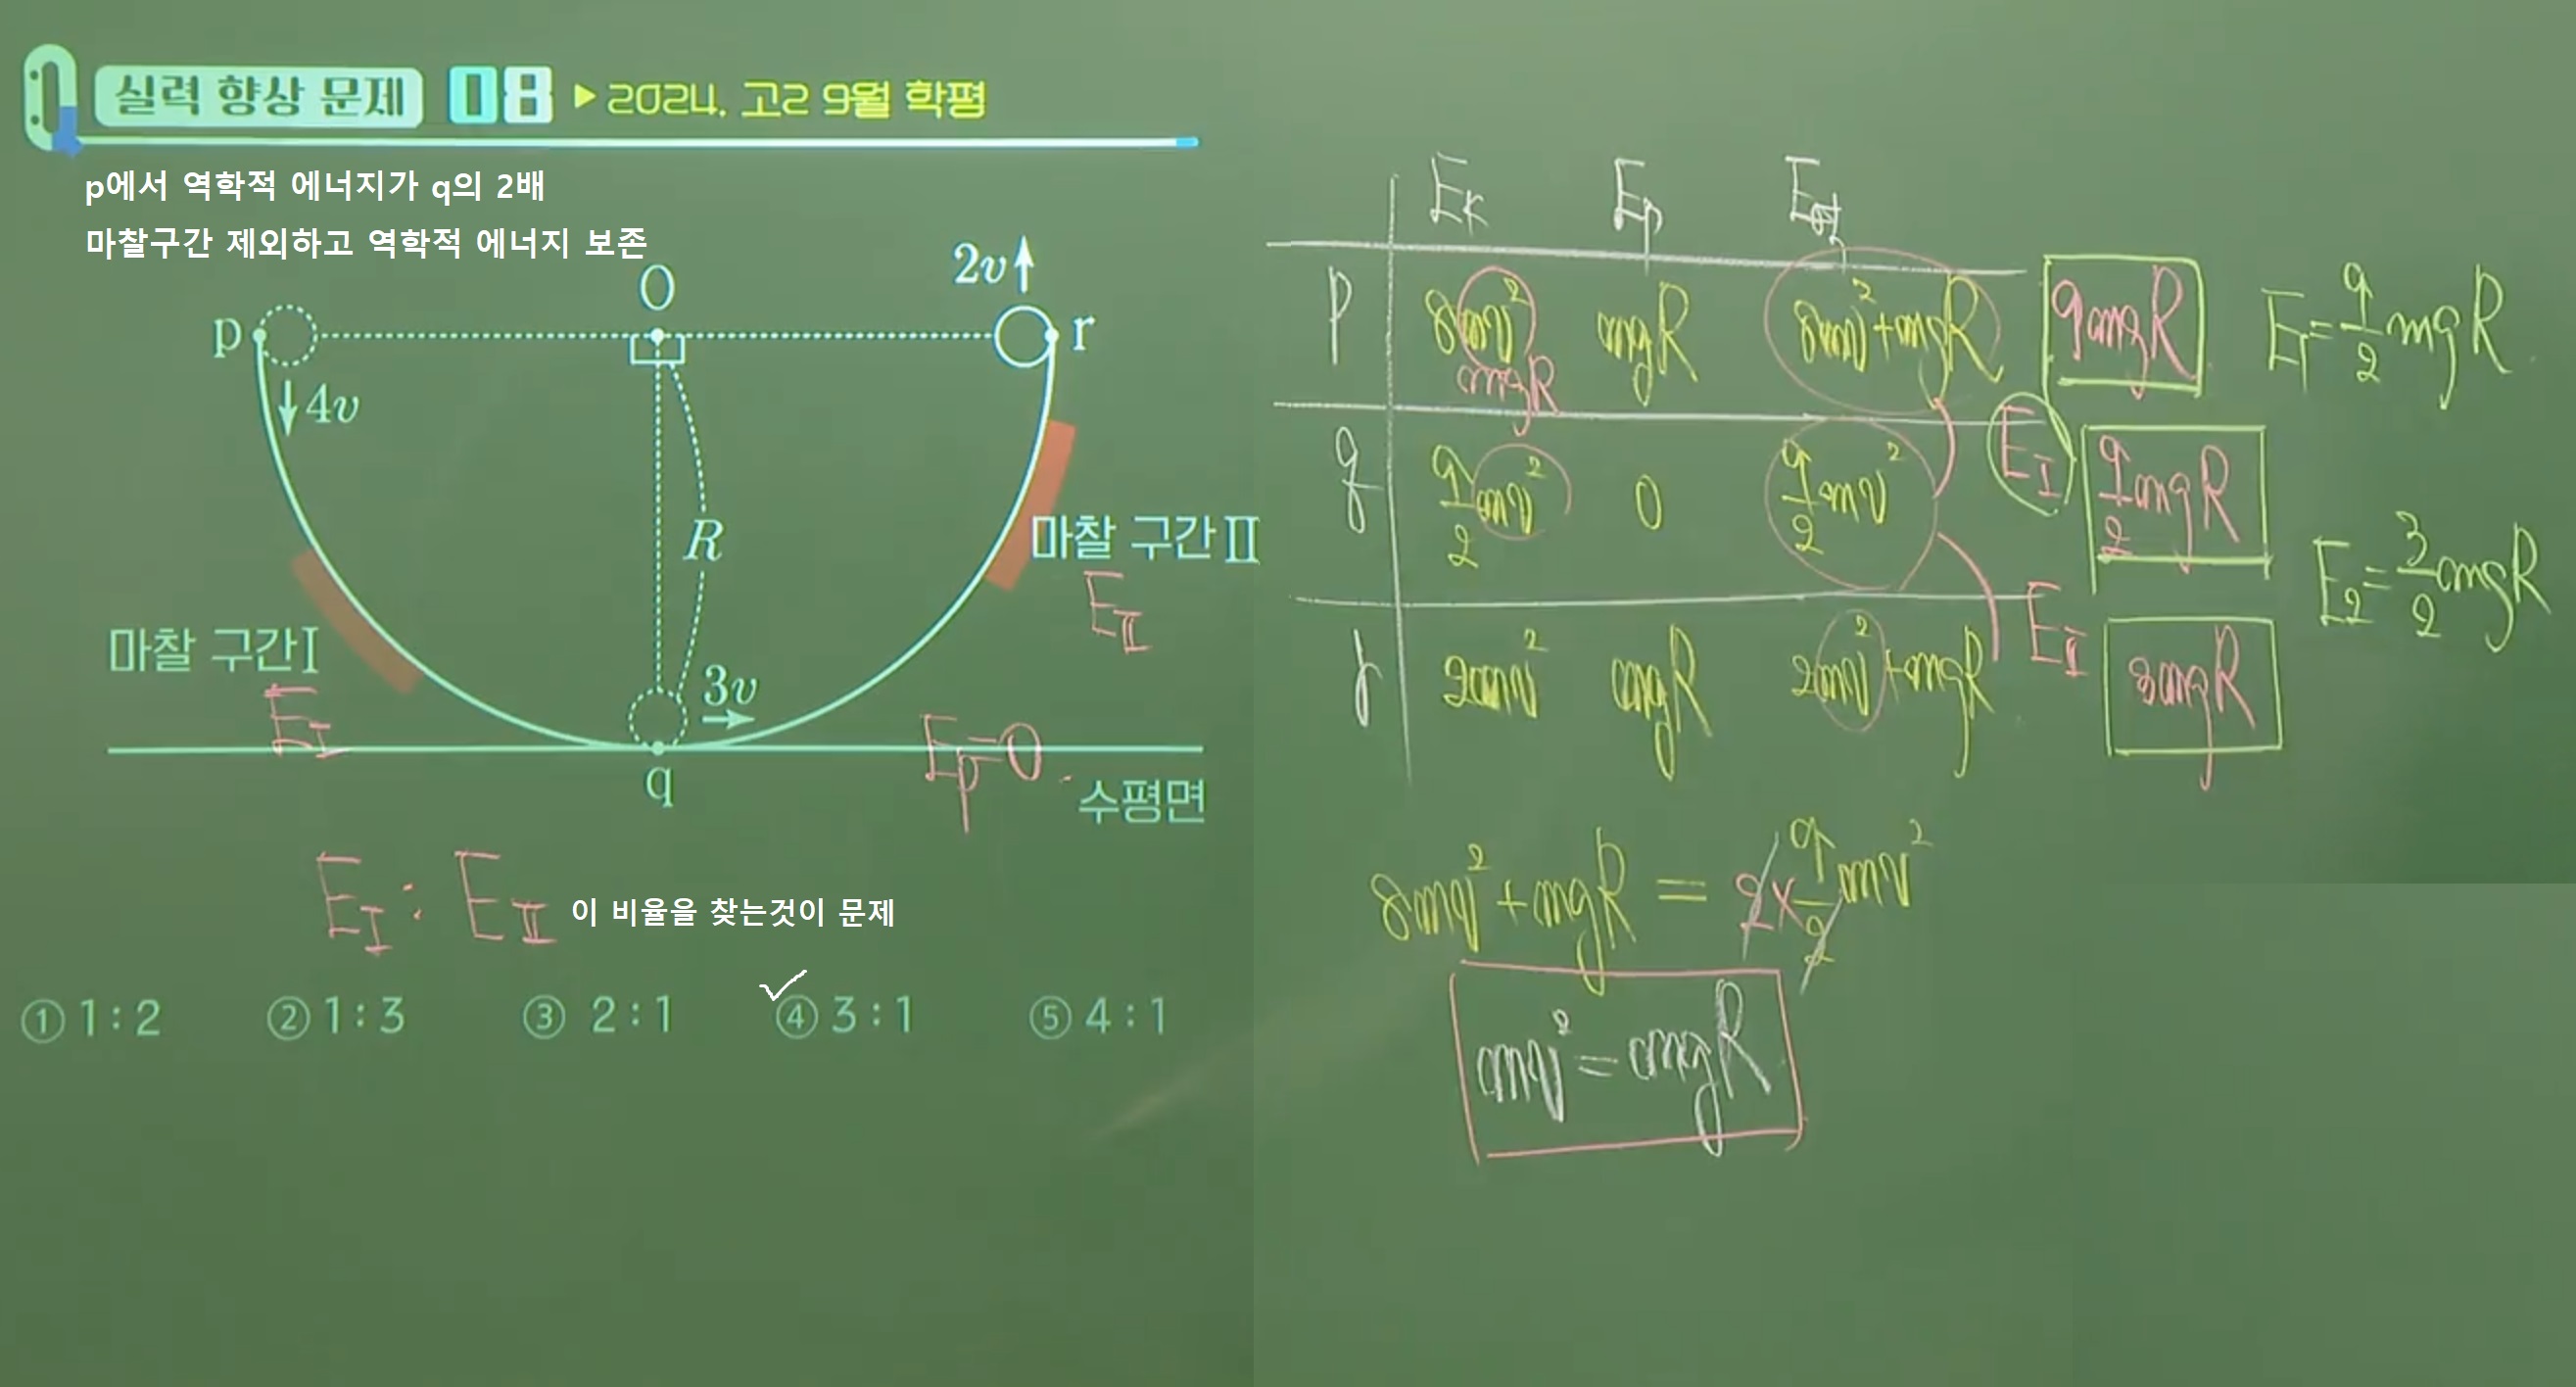 실력 향상 문제 08 ▶ 2024. 고2 9월 학평
p에서 역학적 에너지가 q의 2배
마찰구간 제외하고 역학적 에너지 보존
2v
O
p
r
4v
R
마찰 구간 II
E_II
마찰 구간 I
E_I
3v
E_p=0
q
수평면
E_I : E_II 이 비율을 찾는것이 문제
① 1 : 2 ② 1 : 3 ③ 2 : 1 ④ 3 : 1 ⑤ 4 : 1
E_k E_p E_역
p 8mv² mgR 8mv²+mgR 9mgR E_I=9/2mgR
mgR
q 9/2mv² 0 9/2mv² E_I 9/2mgR
E_2=3/2mgR
r 2mv² mgR 2mv²+mgR E_II 3mgR
8mv²+mgR = 2×9/2mv²
mv²=mgR